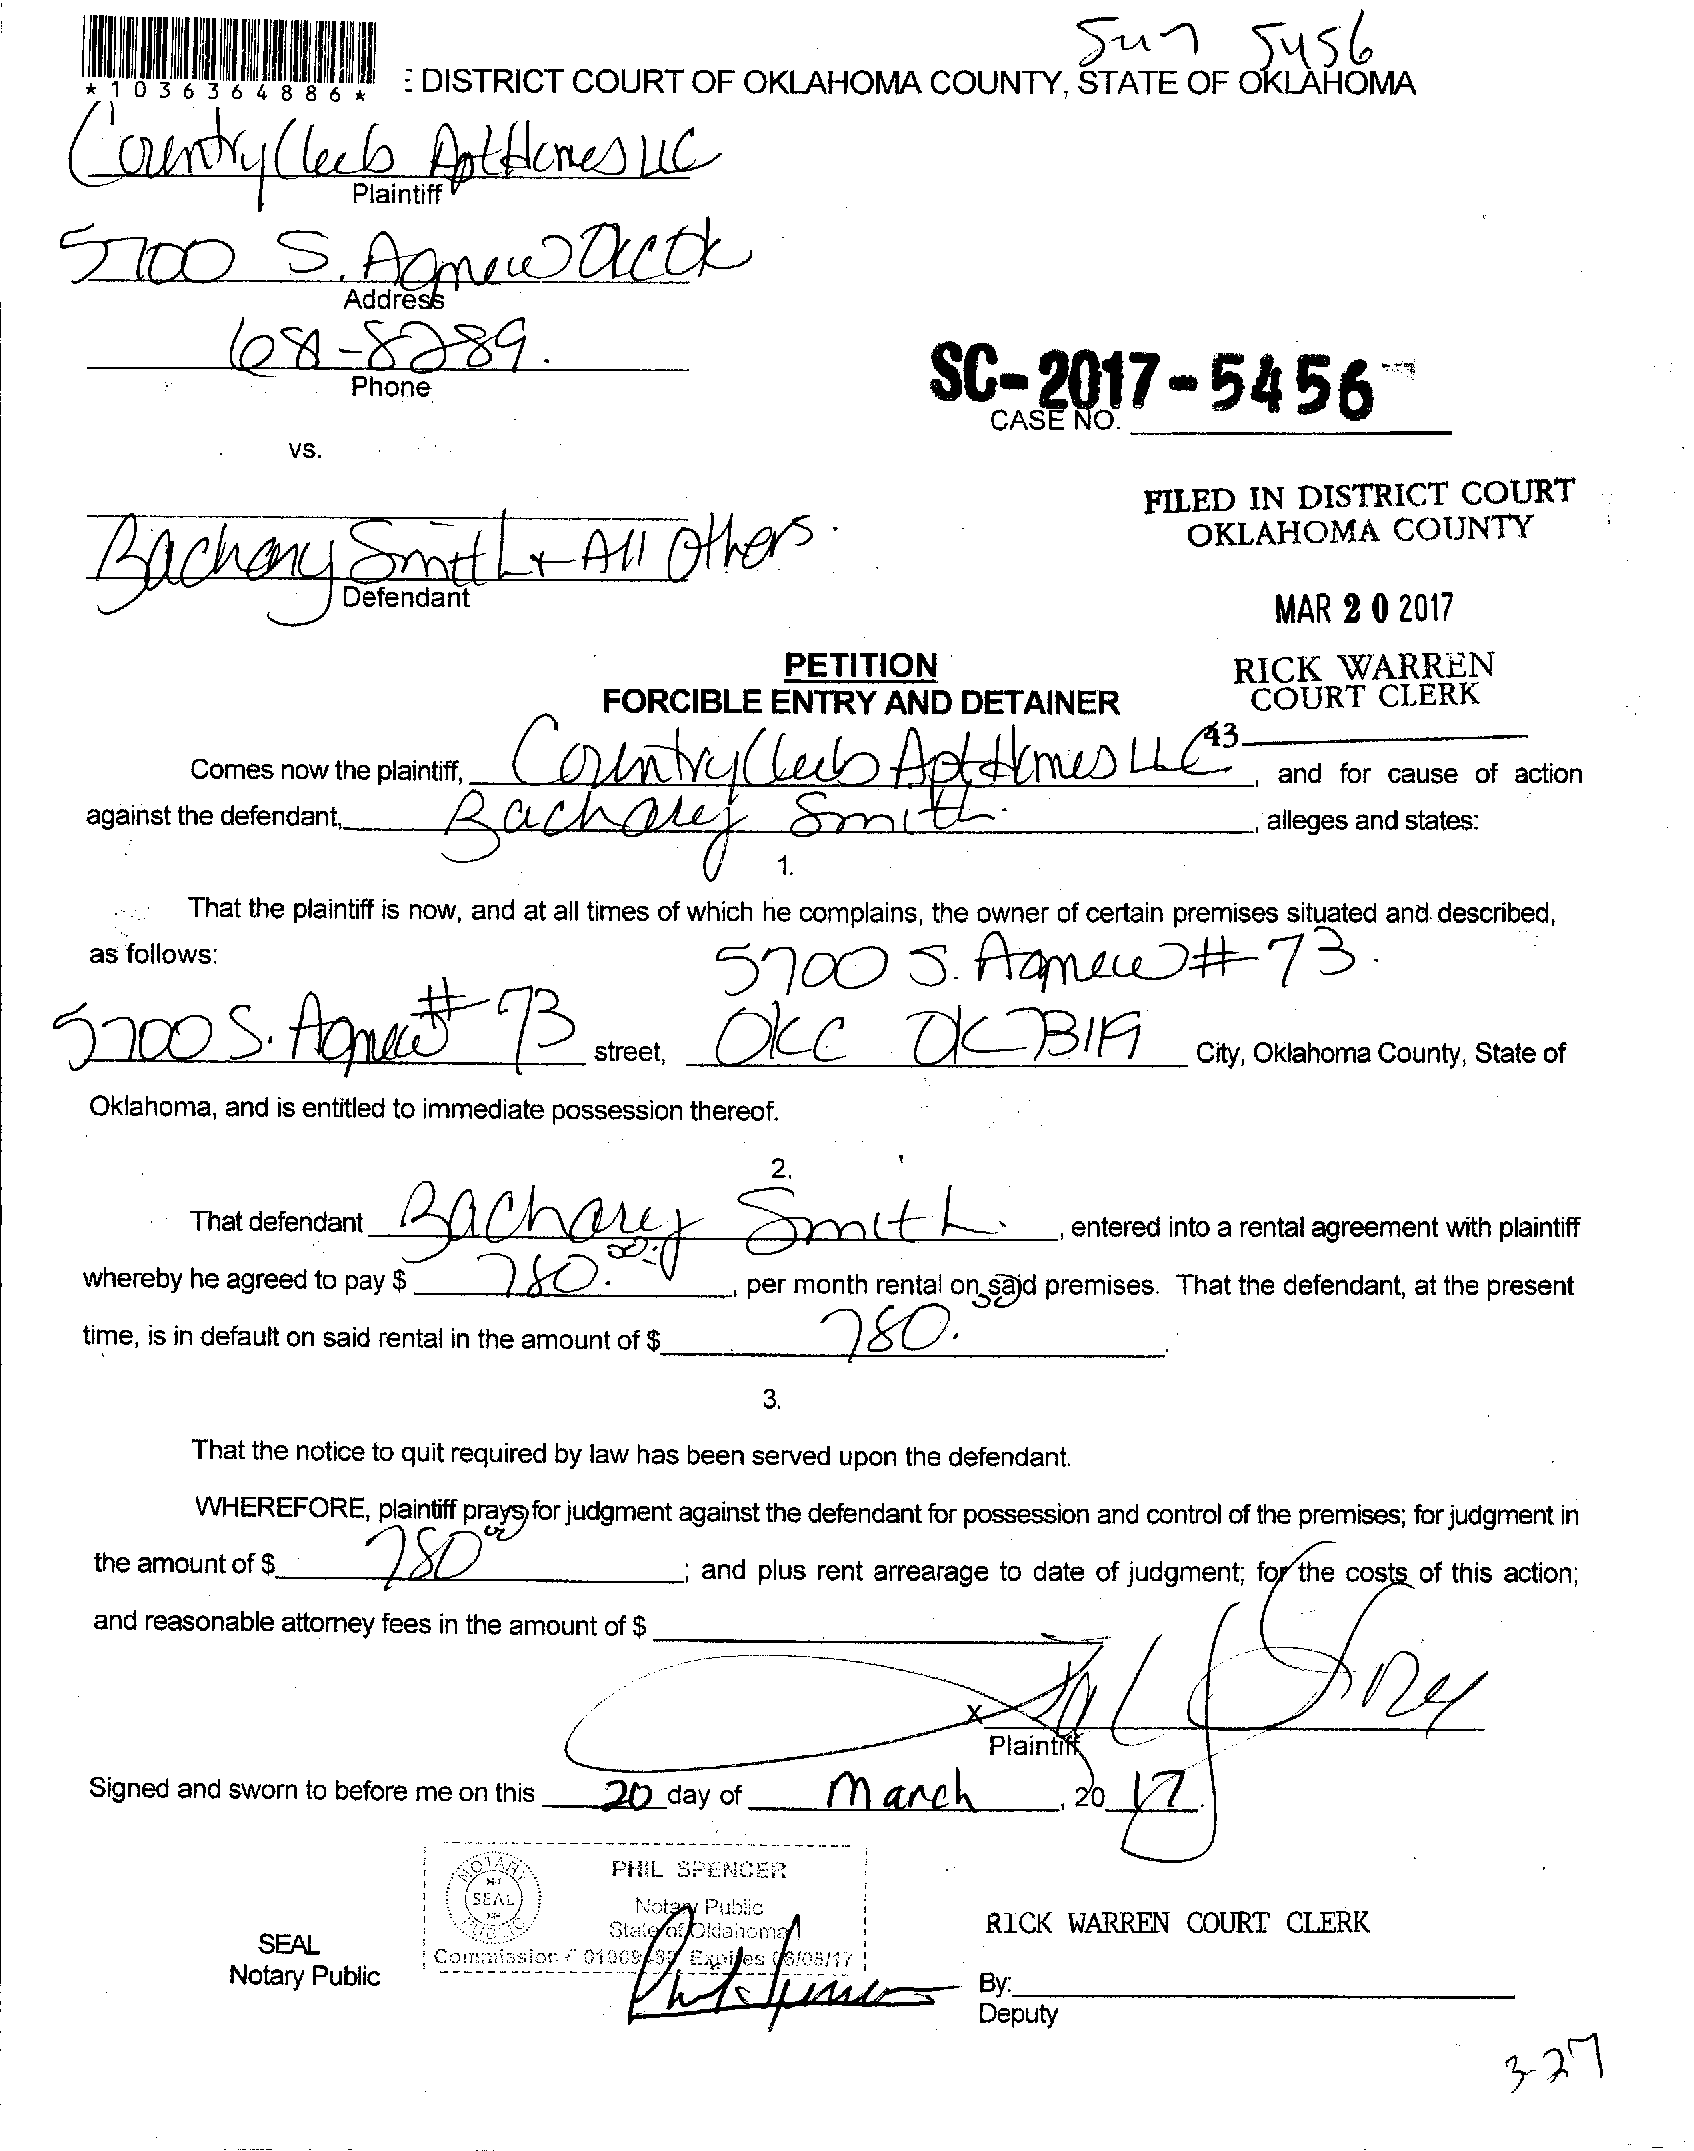 5456
*1036364886*
: DISTRICT COURT OF OKLAHOMA COUNTY, STATE OF OKLAHOMA
Country Club Apt Homes LLC
Plaintiff
5700 S. Agnew OKC OK
Address
681-8289.
Phone
SC-2017-5456
CASE NO.
vs.
FILED IN DISTRICT COURT
OKLAHOMA COUNTY
Zachary Smith + All Others.
Defendant
MAR 20 2017
PETITION
RICK WARREN
FORCIBLE ENTRY AND DETAINER
COURT CLERK
43
Comes now the plaintiff, Country Club Apt Homes LLC, and for cause of action
against the defendant, Zacharey Smith. , alleges and states:
1.
That the plaintiff is now, and at all times of which he complains, the owner of certain premises situated and described,
as follows: 5700 S. Agnew # 73.
5700 S. Agnew # 73 street, OKC OK 73119 City, Oklahoma County, State of
Oklahoma, and is entitled to immediate possession thereof.
2.
That defendant Zacharey Smith. , entered into a rental agreement with plaintiff
whereby he agreed to pay $ 780.00 , per month rental on said premises. That the defendant, at the present
time, is in default on said rental in the amount of $ 780.00 .
3.
That the notice to quit required by law has been served upon the defendant.
WHEREFORE, plaintiff prays for judgment against the defendant for possession and control of the premises; for judgment in
the amount of $ 780.00 ; and plus rent arrearage to date of judgment; for the costs of this action;
and reasonable attorney fees in the amount of $
x
Plaintiff
Signed and sworn to before me on this 20 day of March , 20 17.
NOTARY
SEAL
PUBLIC
PHIL SPENCER
Notary Public
State of Oklahoma
Commission # Expires 06/08/17
Phil Spencer
SEAL
Notary Public
RICK WARREN COURT CLERK
By:
Deputy
3-27